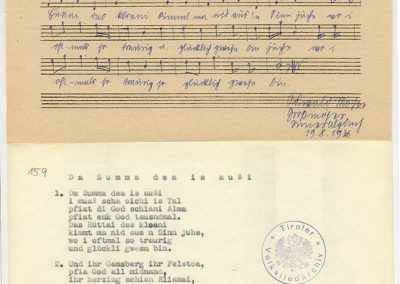 Hüttai das kloani kimmt ma nid aus'n Sinn juhe wo i
oft-mals so traurig u. glücklich gwesn bin juhe wo i
oft-mals so traurig so glücklich gwesn bin.
Oswald Moser
19.8.1936
159
Da Summa dea is auši
1. Da Summa dea is auši
i muaš scha oichi is Tal
pfiat di God schiani Alma
pfiat enk God tausndmal.
Das Hüttai das kloani
kimmt ma nid aus n Sinn juhe,
wo i oftmal so traurig
und glückli gwesn bin.
2. Und ihr Gamsberg ihr Felstoa,
pfia God all midnand,
ihr herzing schian Bliamai,
Tiroler
Volksliedarchiv